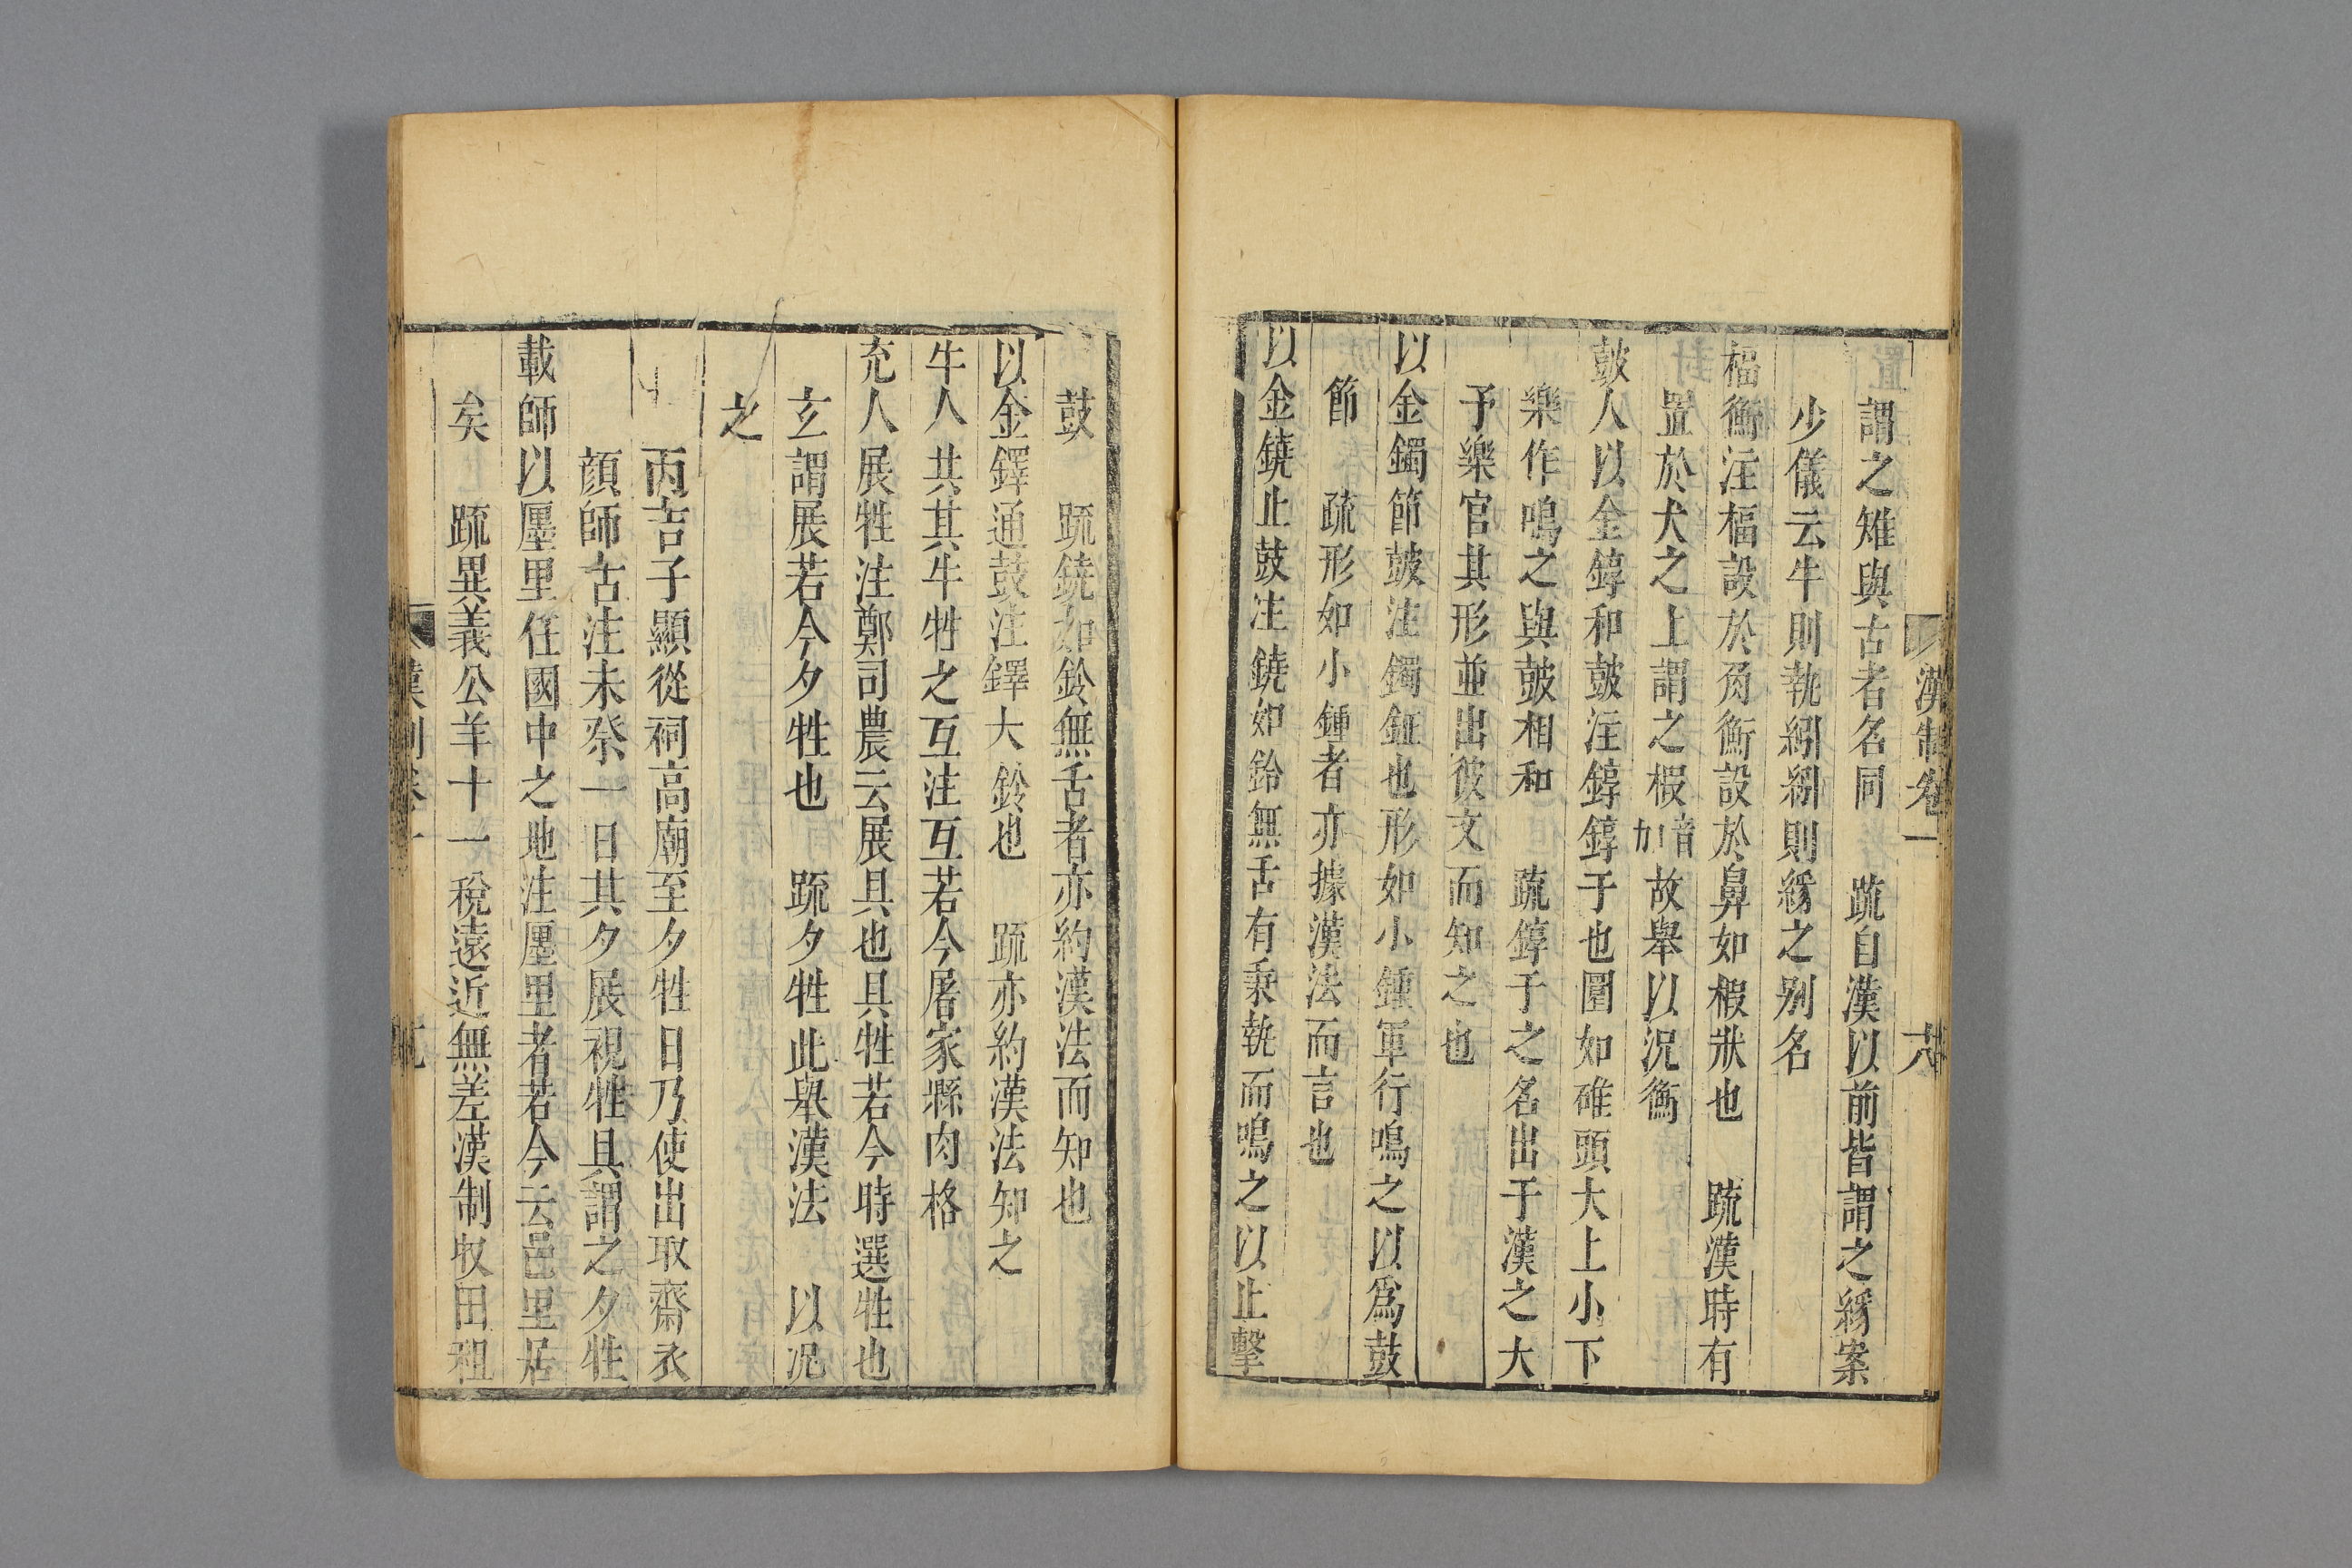 漢制卷一 六
謂之雉與古者名同 疏自漢以前皆謂之綏案
少儀云牛則執紖紖則綏之別名
楅衡注楅設於角衡設於鼻如椵狀也 疏漢時有
置於犬之上謂之椵音加故舉以況衡
鼓人以金錞和鼓注錞錞于也圜如碓頭大上小下
樂作鳴之與鼓相和 疏錞于之名出于漢之大
予樂官其形並出彼文而知之也
以金鐲節鼓注鐲鉦也形如小鍾軍行鳴之以爲鼓
節 疏形如小鍾者亦據漢法而言也
以金鐃止鼓注鐃如鈴無舌有秉執而鳴之以止擊
鼓 疏鐃如鈴無舌者亦約漢法而知也
以金鐸通鼓注鐸大鈴也 疏亦約漢法知之
牛人共其牛牲之互注互若今屠家縣肉格
充人展牲注鄭司農云展具也具牲若今時選牲也
玄謂展若今夕牲也 疏夕牲此舉漢法 以況
之
丙吉子顯從祠高廟至夕牲日乃使出取齋衣
顔師古注未祭一日其夕展視牲具謂之夕牲
載師以廛里任國中之地注廛里者若今云邑里居
矣 疏異義公羊十一稅遠近無差漢制收田租
漢制卷一